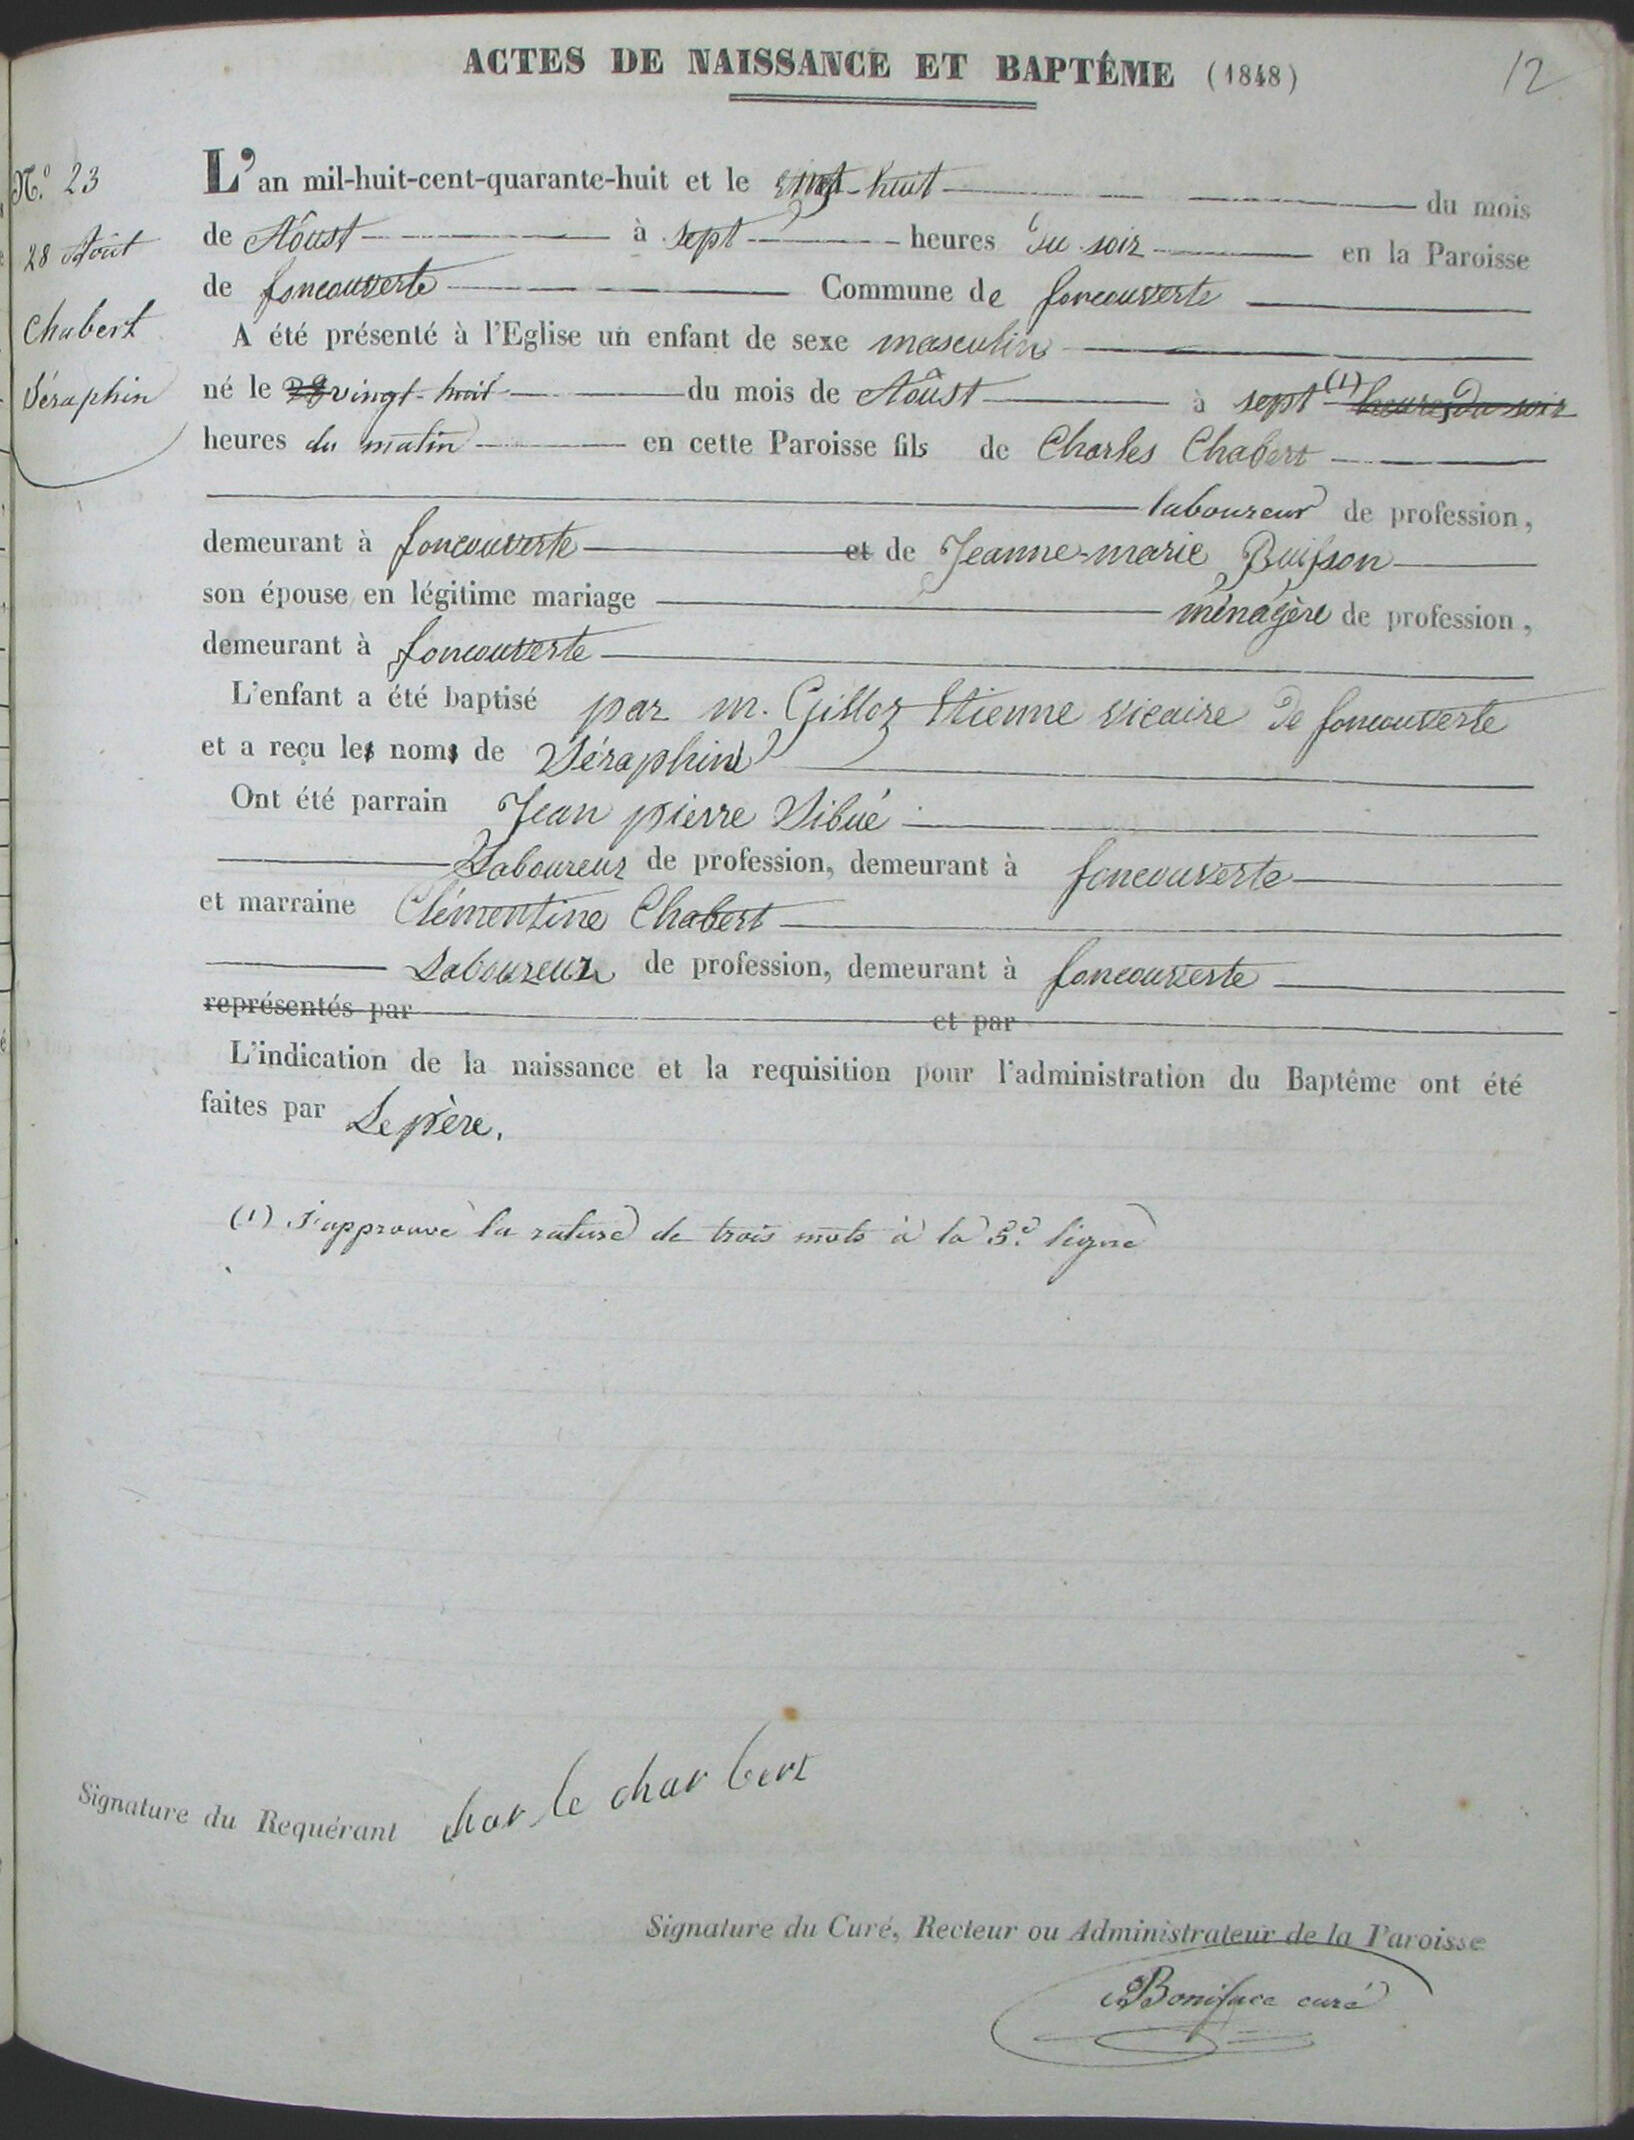 ACTES DE NAISSANCE ET BAPTÊME (1848)
12
N.º 23
28 Août
Chabert
Séraphin
L'an mil-huit-cent-quarante-huit et le vingt-huit du mois
de Aôust à sept heures du soir en la Paroisse
de foncouverte Commune de foncouverte
A été présenté à l'Eglise un enfant de sexe masculin
né le 28 vingt-huit du mois de Aôust à sept (1) heures du soir
heures du matin en cette Paroisse fils de Charles Chabert
laboureur de profession,
demeurant à foncouverte et de Jeanne-marie Buisson
son épouse en légitime mariage ménagère de profession,
demeurant à foncouverte
L'enfant a été baptisé par m. Gilloz Etienne vicaire de foncouverte
et a reçu les noms de Séraphin
Ont été parrain Jean pierre Sibué
Laboureur de profession, demeurant à foncouverte
et marraine Clémentine Chabert
Laboureur de profession, demeurant à foncouverte
représentés par et par
L'indication de la naissance et la requisition pour l'administration du Baptême ont été
faites par Le père.
(1) J'approuve la rature de trois mots à la 5.e ligne
Signature du Requérant char le char bert
Signature du Curé, Recteur ou Administrateur de la Paroisse
Boniface curé